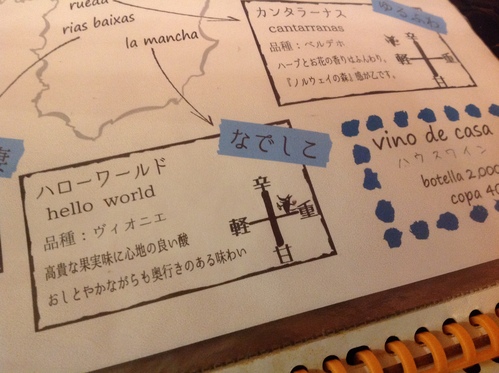 rueda
rias baixas
la mancha
カンタラーナス
cantarranas
品種：ベルデホ
ハーブとお花の香りはふんわり。
『ノルウェイの森』感が乙です。
辛
軽
重
甘
ゆるふわ
なでしこ
ハローワールド
hello world
品種：ヴィオニエ
高貴な果実味に心地の良い酸
おしとやかながらも奥行きのある味わい
辛
軽
重
甘
vino de casa
ハウスワイン
botella 2,000
copa 40